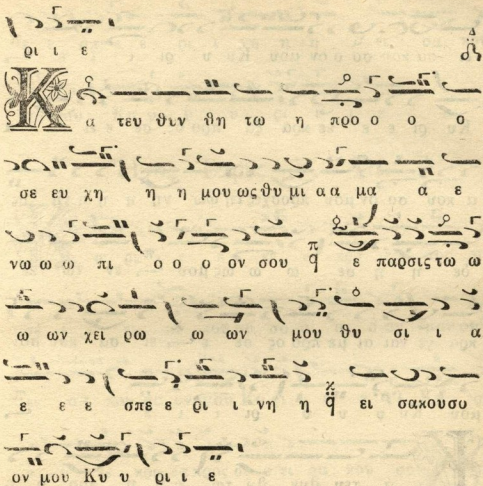 ρι ι ε
Κ α τευ θιν θη τω η προ ο ο ο
σε ευ χη η η μου ως θυ μι α α μα α ε
νω ω ω πι ο ο ρ ον σου π q ε παρσις τω ω
ω ων χει ρω ω ων μου θυ σι ι α
ε ε ε σπε ε ρι ι νη η χ q ει σακουσο
ον μου Κυ υ ρι ι ε